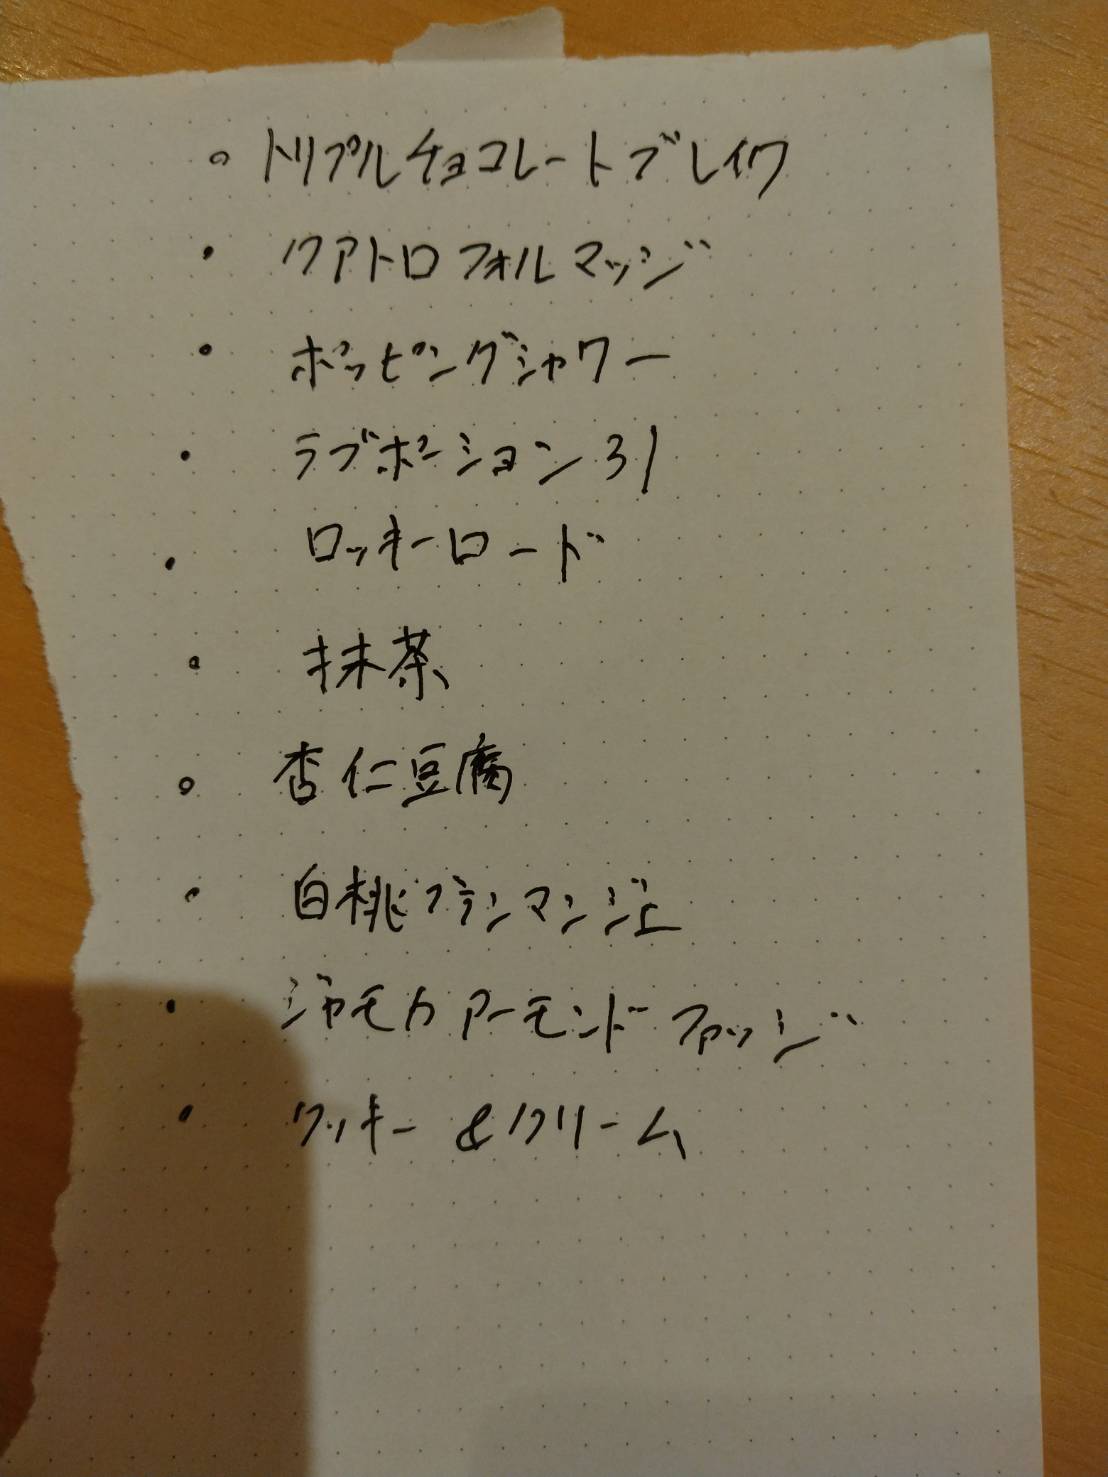 。トリプルチョコレートブレイク
・クアトロフォルマッジ
・ポッピングシャワー
・ラブポーション31
・ロッキーロード
・抹茶
。杏仁豆腐
・白桃ブランマンジェ
・ジャモカアーモンドファッジ
・クッキー&クリーム